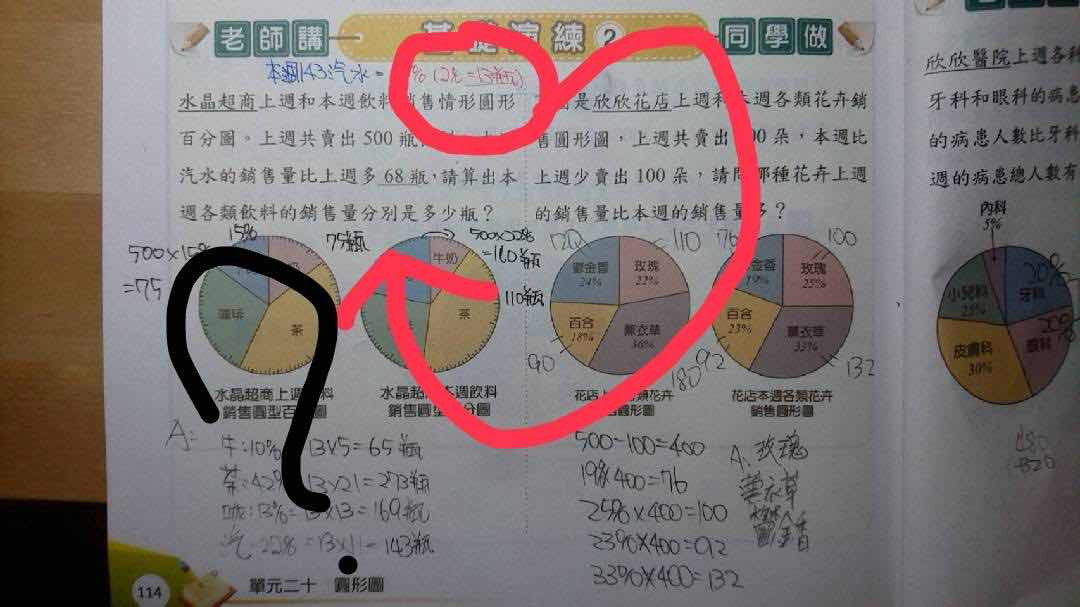 老師講
基礎演練 2
同學做
本週143汽水=
% (2%=13瓶)
水晶超商上週和本週飲料銷售情形圓形
百分圖。上週共賣出500瓶
汽水的銷售量比上週多68瓶,請算出本
週各類飲料的銷售量分別是多少瓶?
15%
75瓶
500×15%
=75
咖啡
茶
水晶超商上週
料
銷售圓型百
圖
500×22%
=110瓶
110瓶
牛奶
茶
本週飲料
銷售圓型
分圖
是欣欣花店上週和本週各類花卉銷
售圓形圖,上週共賣出
00朵,本週比
上週少賣出100朵,請問那種花卉上週
的銷售量比本週的銷售量多?
120
110
鬱金香
24%
玫瑰
22%
百合
18%
薰衣草
36%
90
180
花店
類花卉
圓形圖
76
100
金香
19%
玫瑰
25%
百合
23%
薰衣草
33%
92
132
花店本週各類花卉
銷售圓形圖
A:
牛:10%
13×5=65瓶
茶:42%
13×21=273瓶
13%=13×13=169瓶
汽:22%=13×11=143瓶
500-100=400
19%×400=76
25%×400=100
23%×400=92
33%×400=132
A:玫瑰
薰衣草
鬱金香
114
單元二十 圓形圖
欣欣醫院上週各科
牙科和眼科的病患
的病患人數比牙科
週的病患總人數有
內科
5%
小兒科
25%
20%
牙科
20%
眼科
皮膚科
30%